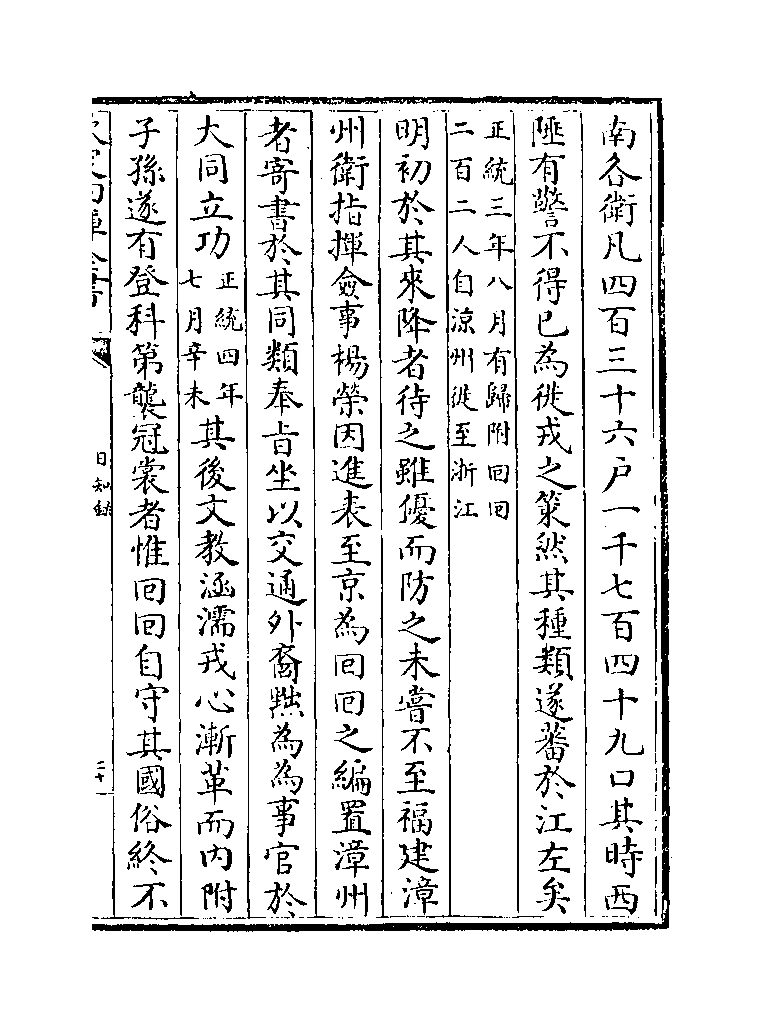 南各衛凡四百三十六户一千七百四十九口其時西
陲有警不得已為徙戎之策然其種類遂蕃於江左矣
正統三年八月有歸附回回
二百二人自涼州徙至浙江
明初於其來降者待之雖優而防之未嘗不至福建漳
州衛指揮僉事楊榮因進表至京為回回之編置漳州
者寄書於其同類奉旨坐以交通外裔黜為為事官於
大同立功
正統四年
七月辛未
其後文教涵濡戎心漸革而内附
子孫遂有登科第襲冠裳者惟回回自守其國俗終不
日知録